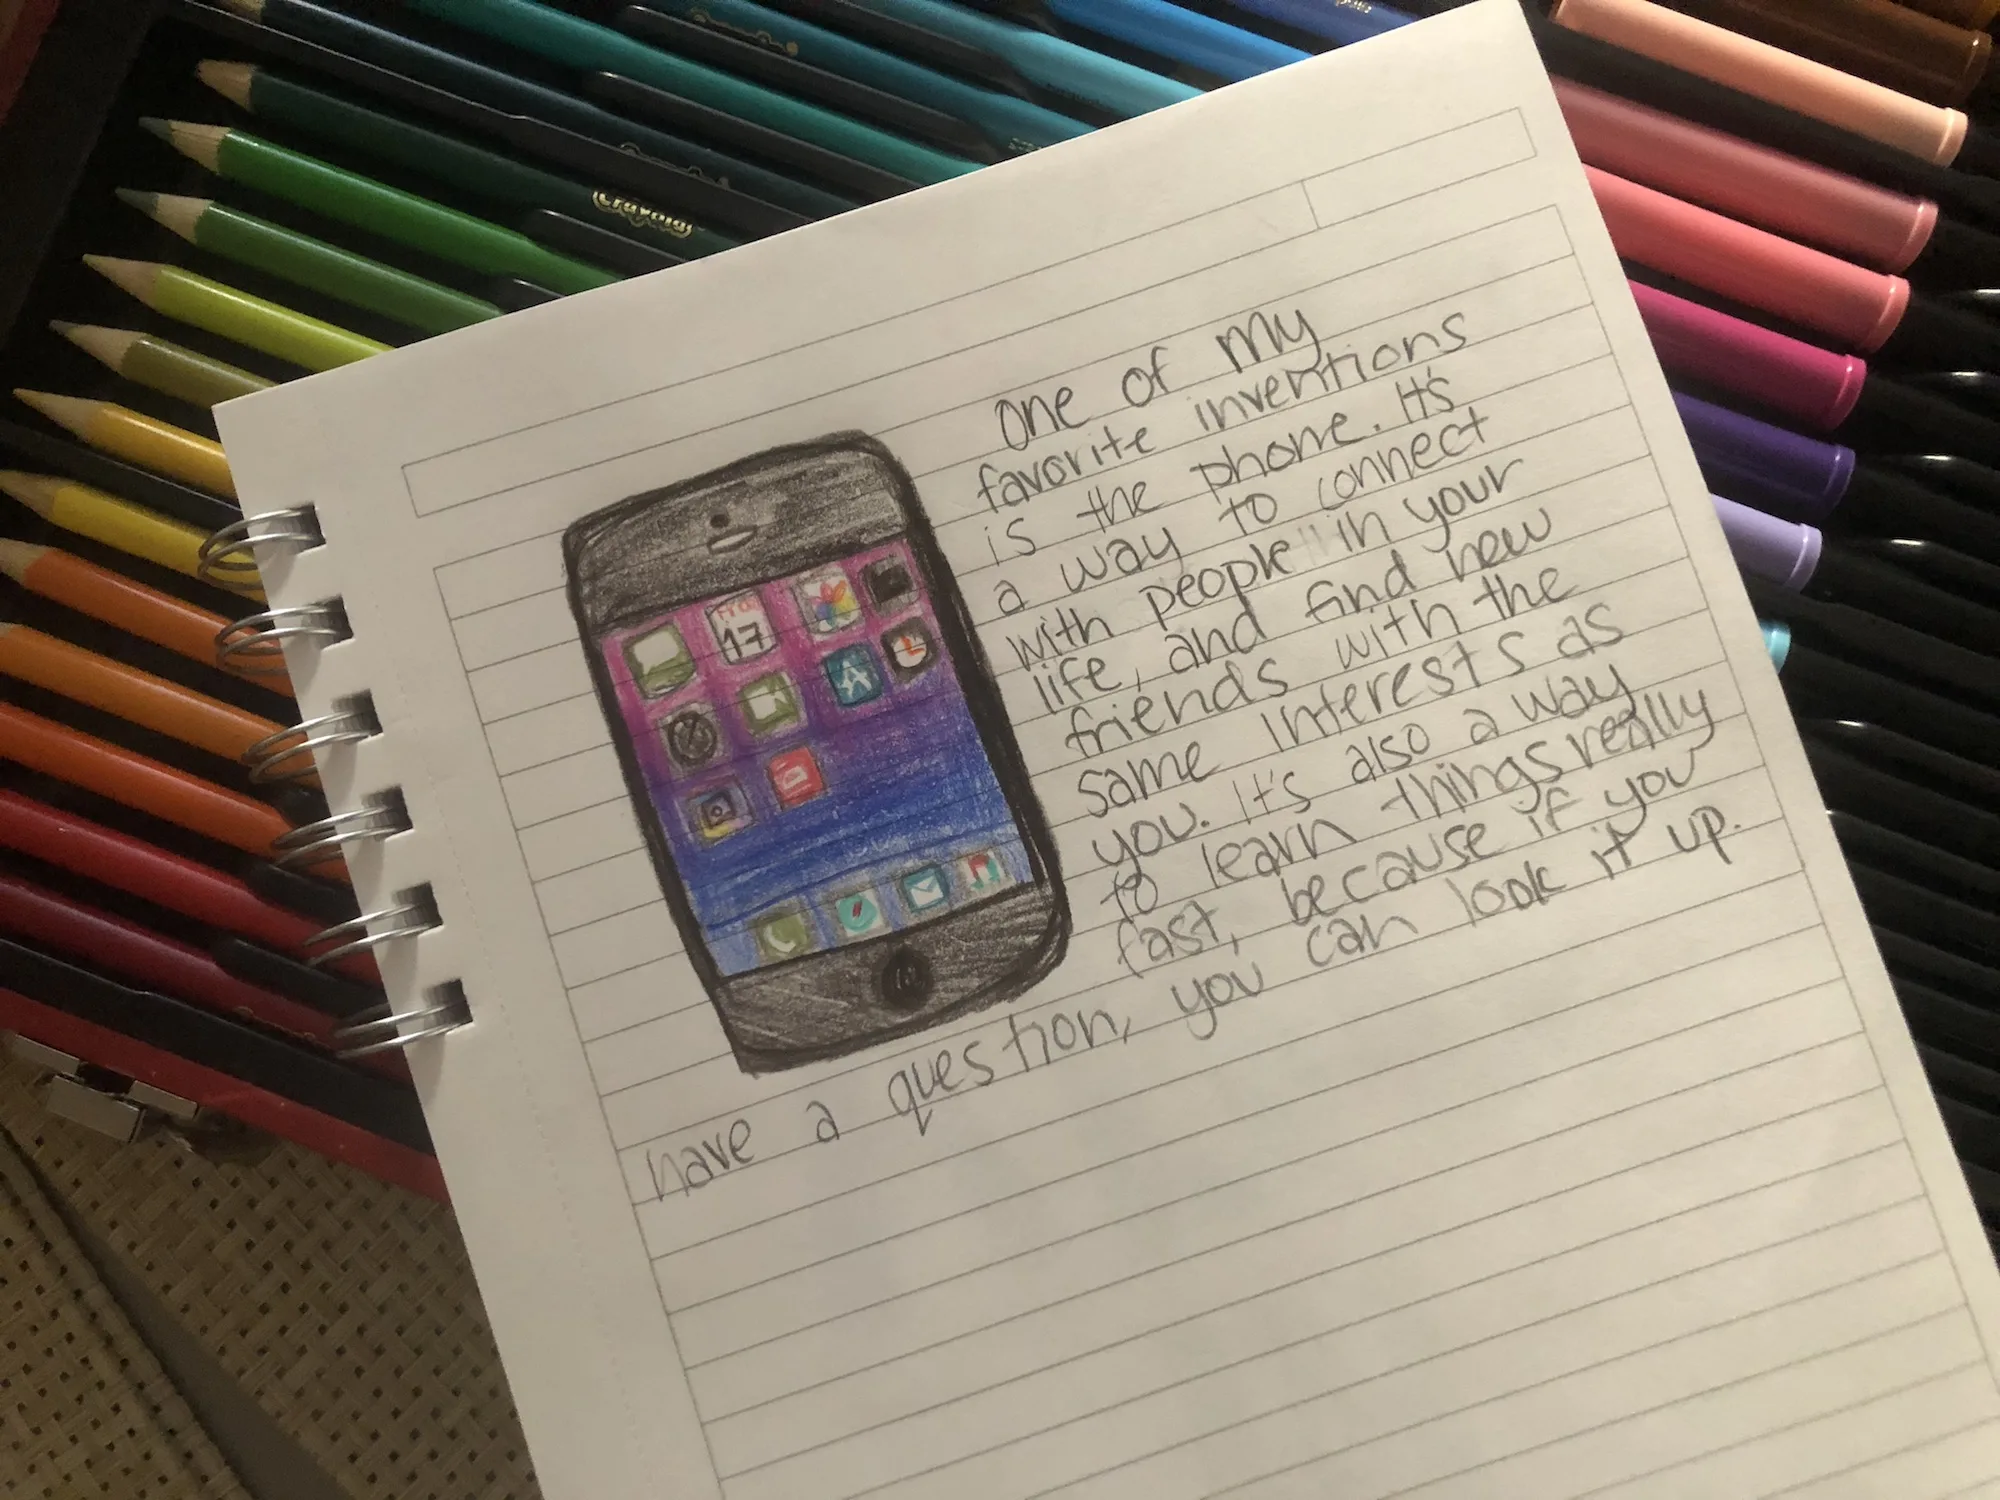 Crayola
One of my
favorite inventions
is the phone. It's
a way to connect
with people in your
life, and find new
friends with the
same interests as
you. It's also a way
to learn things really
fast, because if you
have a question, you can look it up.
17